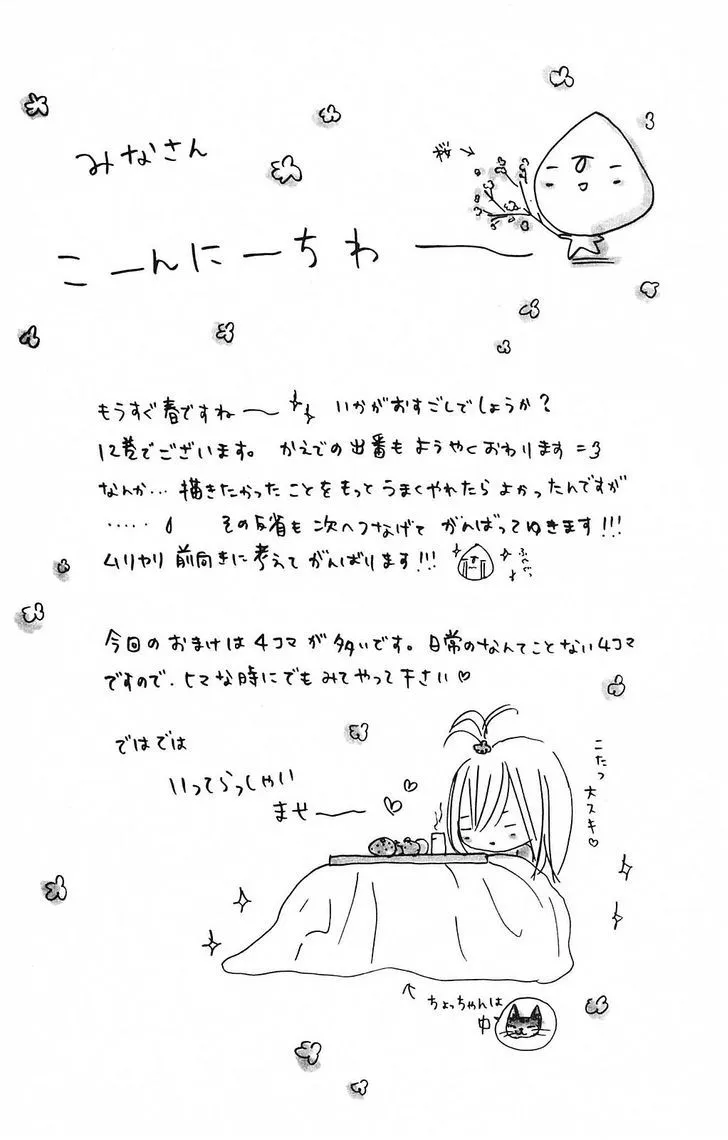 みなさん
桜→
こーんにーちわ――
もうすぐ春ですね〜 いかがおすごしでしょうか?
12巻でございます。 かえでの出番もようやくおわります=3
なんか… 描きたかったことをもっとうまくやれたらよかったんですが
…… その反省も次へつなげてがんばってゆきます!!!
ムリヤリ前向きに考えてがんばります!!!
今回のおまけは4コマが多いです。日常のなんてことない4コマ
ですので、ヒマな時にでもみてやって下さい♡
ではでは
いってらっしゃい
ませ――
こたつ大スキ♡
ちょっちゃんは
中